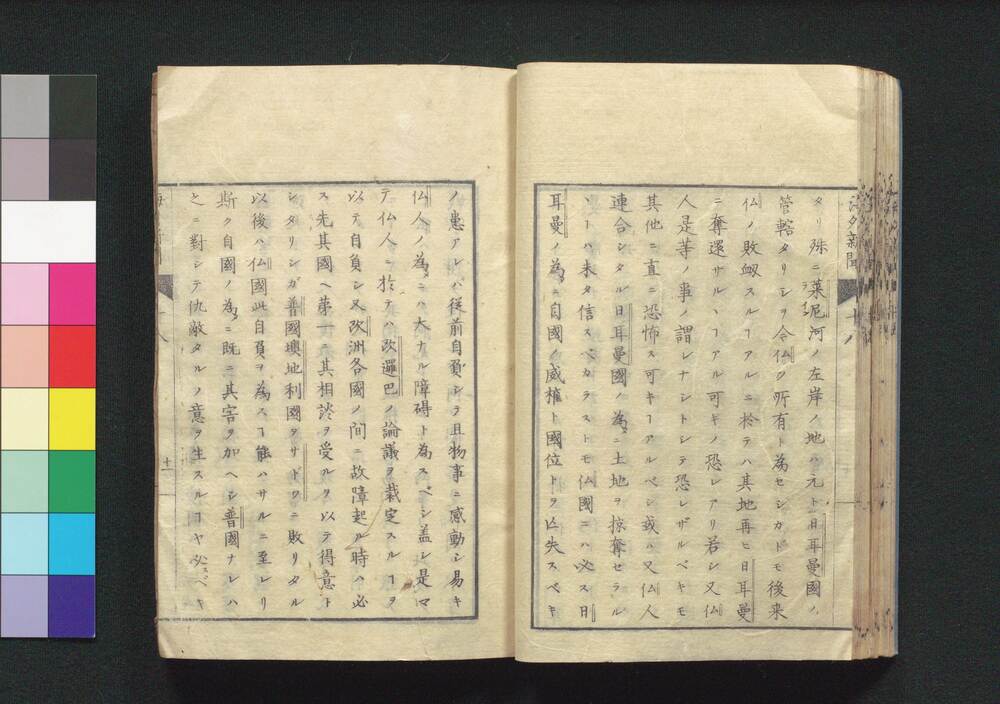 タリ殊ニ萊尼河ノ左岸ノ地ハ元ト日耳曼國ノ
管轄タリシヲ今仏ノ所有ト為セシカドモ後来
仏ノ敗衂スルヿアルニ於テハ其地再ヒ日耳曼
ニ奪還サルヽヿアル可キノ恐レアリ若シ又仏
人是等ノ事ノ謂レナントシテ恐レザルベキモ
其他ニ直ニ恐怖ス可キヿアルベシ或ハ又仏人
連合シタル日耳曼國ノ為ニ土地ヲ掠奪セラル
ヽトハ未タ信スベカラストモ仏國ニハ必ス日
耳曼ノ為ニ自國ノ威権ト國位トヲ亾失スベキ
ノ患アレバ従前自負シテ且物事ニ感動シ易キ
仏人ノ為ニハ大ナル障碍ト為スベシ盖シ是マ
テ仏人ニ於テハ欧邏巴ノ論議ヲ裁定スルヿヲ
以テ自負シ又欧洲各國ノ間ニ故障起ル時ハ必
ス先其國ヘ第一ニ其相談ヲ受ルヲ以テ得意ト
シタリシガ普國墺地利國ヲサドワニ敗リタル
以後ハ仏國此自負ヲ為スヿ能ハサルニ至レリ
斯ク自國ノ為ニ既ニ其害ヲ加ヘシ普國ナレハ
之ニ對シテ仇敵タルノ意ヲ生スルヿヤ必スベキ
十一